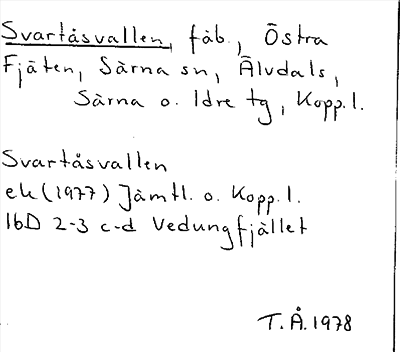 Svartåsvallen, fäb., Östra
Fjäten, Särna sn, Älvdals,
Särna o. Idre tg, Kopp.l.
Svartåsvallen
ek (1977) Jämtl. o. Kopp.l.
16D 2-3 c-d Vedungfjället
T.Å. 1978